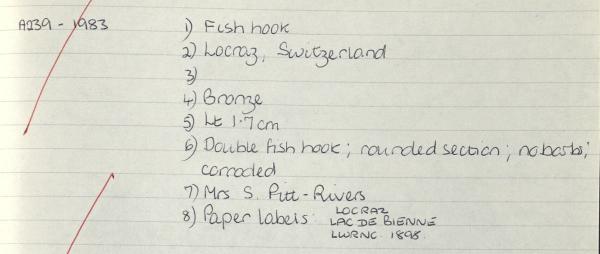 A239 - 1983
1) Fish hook
2) Locraz, Switzerland
3)
4) Bronze
5) Lt 1.7cm
6) Double fish hook; rounded section; no barbs;
corroded
7) Mrs S. Pitt-Rivers
8) Paper labels LOCRAZ
LAC DE BIENNE
LWRNC 1898.